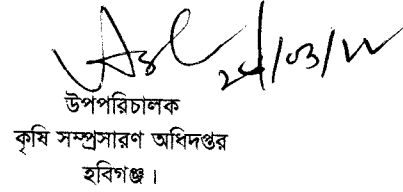 উপপরিচালক
কৃষি সম্প্রসারণ অধিদপ্তর
হবিগঞ্জ।